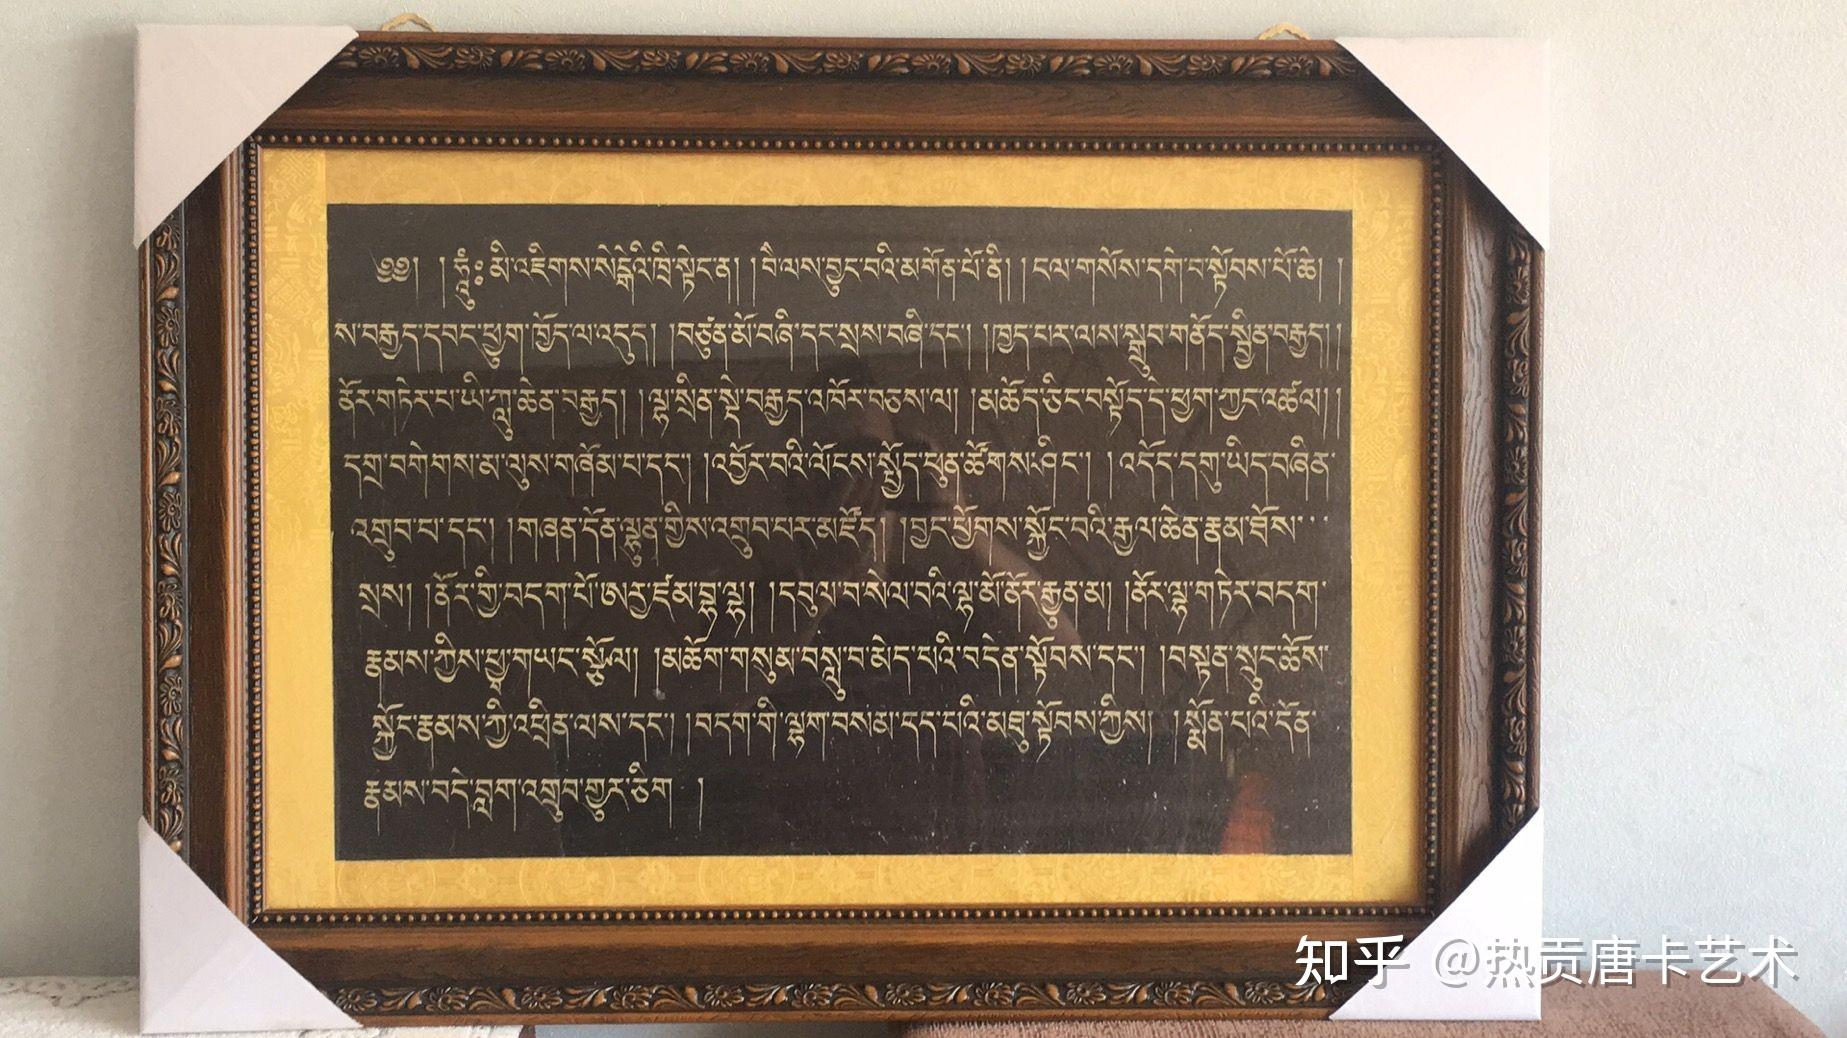 ༄༅། །ཧཱུྃ༔ མི་འཇིགས་སེངྒེའི་ཁྲི་སྟེང་ན། །བཻ་ལས་བྱུང་བའི་མགོན་པོ་ནི། །ངལ་གསོས་དགེ་བ་སྟོབས་པོ་ཆེ། །
ས་བརྒྱད་དབང་ཕྱུག་ཁྱོད་ལ་འདུད། །བཙུན་མོ་བཞི་དང་སྲས་བཞི་དང་། །ཁྱད་པར་ལས་སྒྲུབ་གནོད་སྦྱིན་བརྒྱད། །
ནོར་གཏེར་པ་ཡི་ཀླུ་ཆེན་བརྒྱད། །ལྷ་སྲིན་སྡེ་བརྒྱད་འཁོར་བཅས་ལ། །མཆོད་ཅིང་བསྟོད་དེ་ཕྱག་ཀྱང་འཚལ། །
དགྲ་བགེགས་མ་ལུས་གཞོམ་པ་དང་། །འབྱོར་བའི་ལོངས་སྤྱོད་ཕུན་ཚོགས་ཤིང་། །འདོད་དགུ་ཡིད་བཞིན་
འགྲུབ་པ་དང་། །གཞན་དོན་ལྷུན་གྱིས་འགྲུབ་པར་མཛོད། །བྱང་ཕྱོགས་སྐྱོང་བའི་རྒྱལ་ཆེན་རྣམ་ཐོས་
སྲས། །ནོར་གྱི་བདག་པོ་ཨརྱ་ཛམ་བྷ་ལྷ། །དབུལ་བ་སེལ་བའི་ལྷ་མོ་ནོར་རྒྱུན་མ། །ནོར་ལྷ་གཏེར་བདག་
རྣམས་ཀྱིས་ཕྱྭ་གཡང་སྩོལ། །མཆོག་གསུམ་བསླུ་བ་མེད་པའི་བདེན་སྟོབས་དང་། །བསྟན་སྲུང་ཆོས་
སྐྱོང་རྣམས་ཀྱི་འཕྲིན་ལས་དང་། །བདག་གི་ལྷག་བསམ་དད་པའི་མཐུ་སྟོབས་ཀྱིས། །སྨོན་པའི་དོན་
རྣམས་བདེ་བླག་འགྲུབ་གྱུར་ཅིག །
知乎 @热贡唐卡艺术